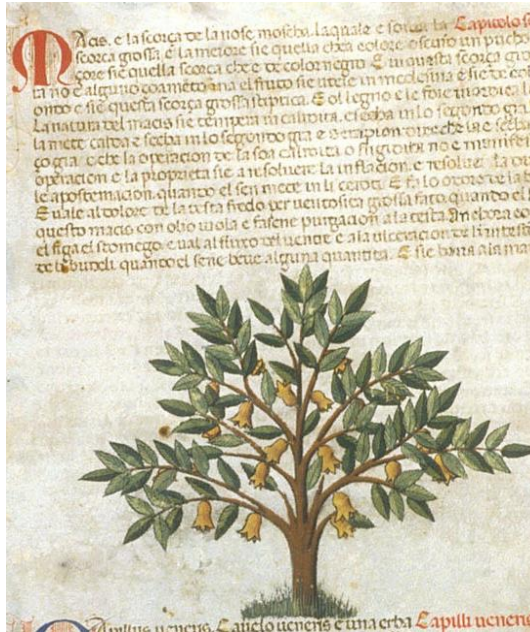 Macis. e la scorça de la nose moscha. la quale e sovra la Capitolo
scorça grossa. E la meiore sie quella che a colore oscuro un pucho
çore sie quella scorça che e de color negro. E in questa scorça gro
ta no e alguno coameto ma el fruto sie utele in medesina e sie de
ondo e sie questa scorça grossa stiptica. E ol legno e le foie
La natura del macis sie tempera in calidita. e secha in lo segondo gra
la mete calda e secha in lo segondo gra e Serapion dixe che la e secha
ço gra. e che la operacion de la soa calidita o frigidita no e manifesta
operacion e la proprieta sie a resolvere la inflacion. e resolver la
le apostemacion. quando el sen mete in li ceroti. E fa lo odore de la b
E vale al dolore de la testa fredo per ventosita grossa fato. quando el
questo macis con olio viola e fasene purgacion a la testa. Anchora co
el figa el stomego. e val al fluxo del ventre e a la ulceracion de l'intesti
de li budeli. quando el sene beve alguna quantita. E sie bona a la ma
Capillus veneris. Cavelo veneris e una erba Capilli veneri